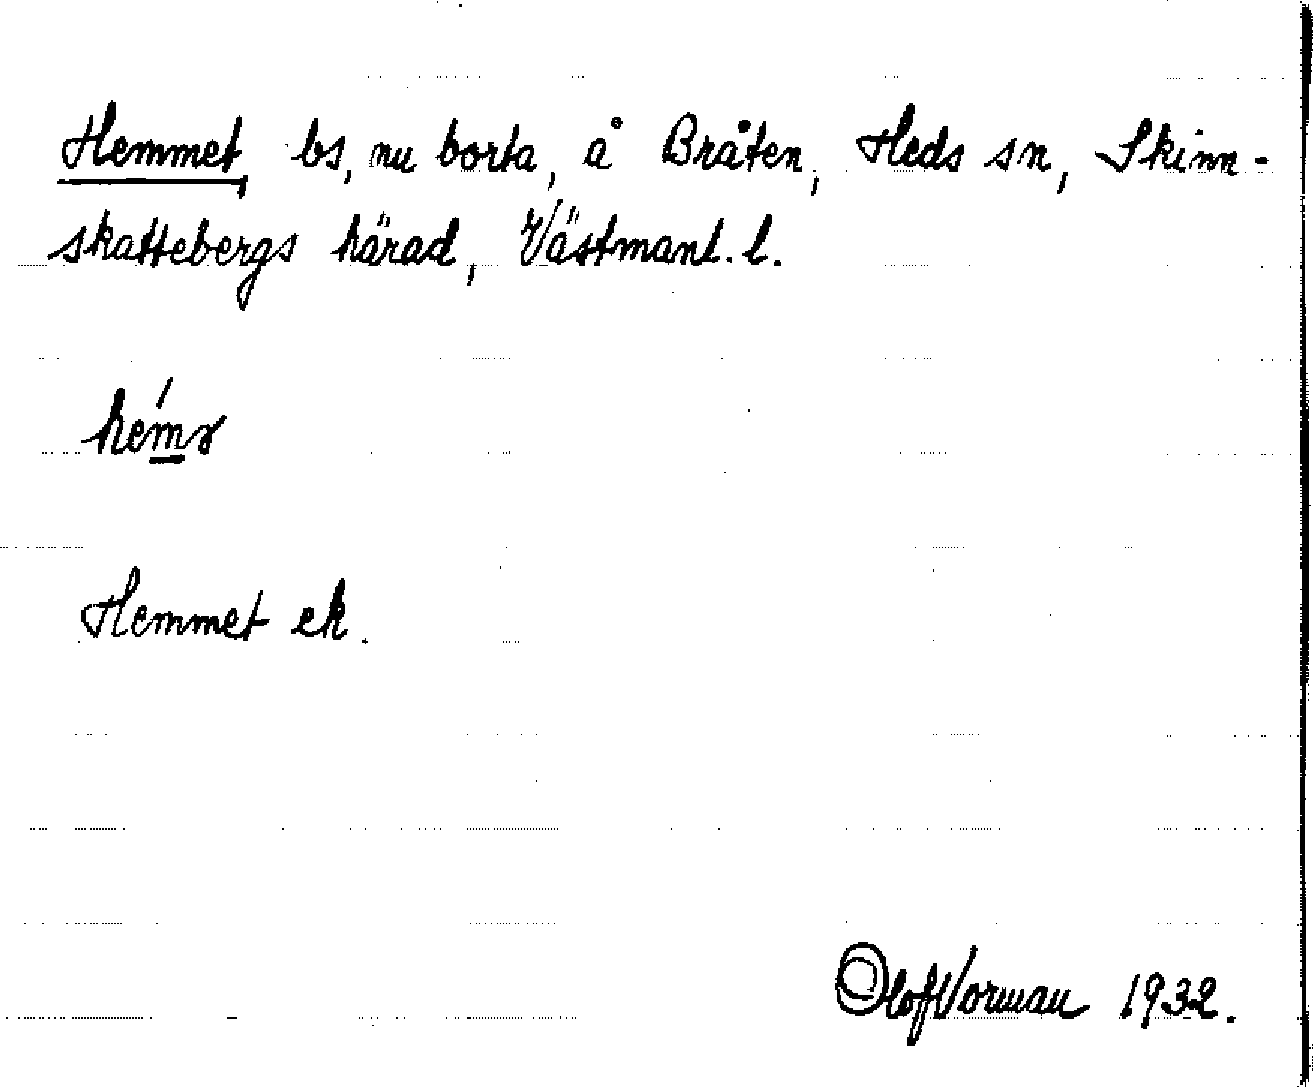 Hemmet, bs, nu borta, å Bråten, Heds sn, Skinn-
skattebergs härad, Västmanl. l.
Hemmet ek.
Olof Vorman 1932.